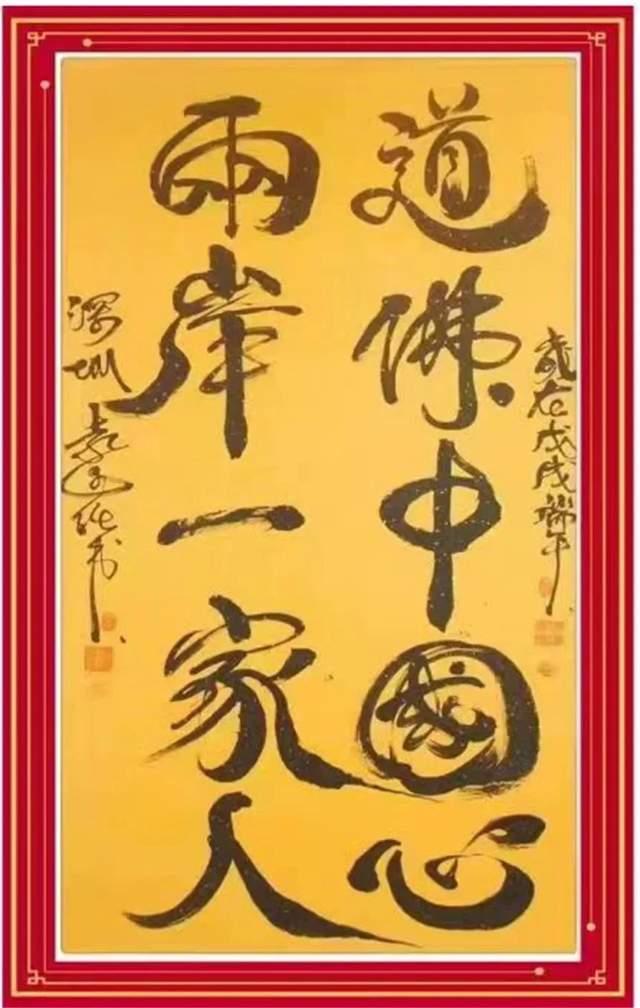 歲在戊戌端午
道佛中國心
兩岸一家人
深圳